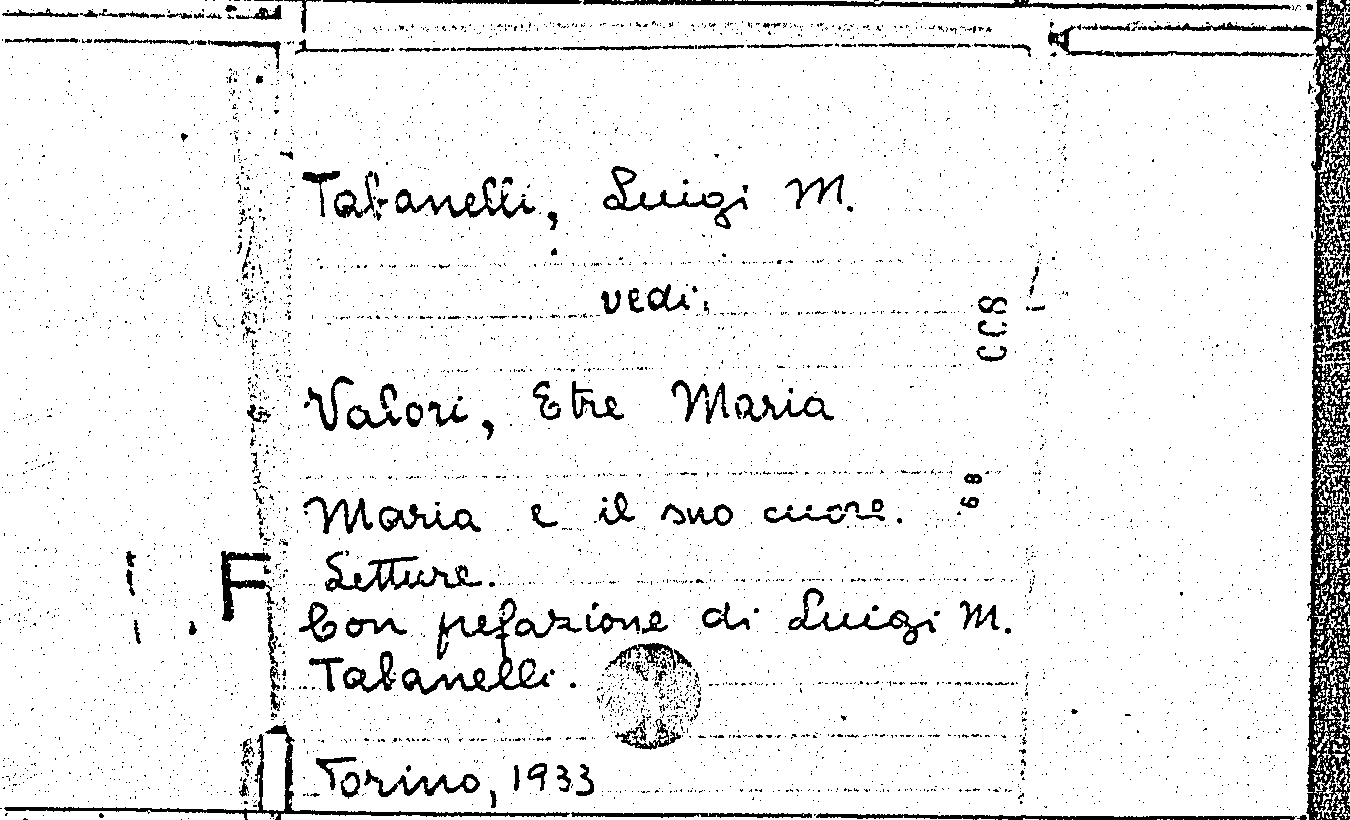 Tabanelli, Luigi M.
vedi:
CCS
Valori, Etre Maria
68
Maria e il suo cuore.
Letture.
F
Con pefazione di Luigi M.
Tabanelli.
Torino, 1933